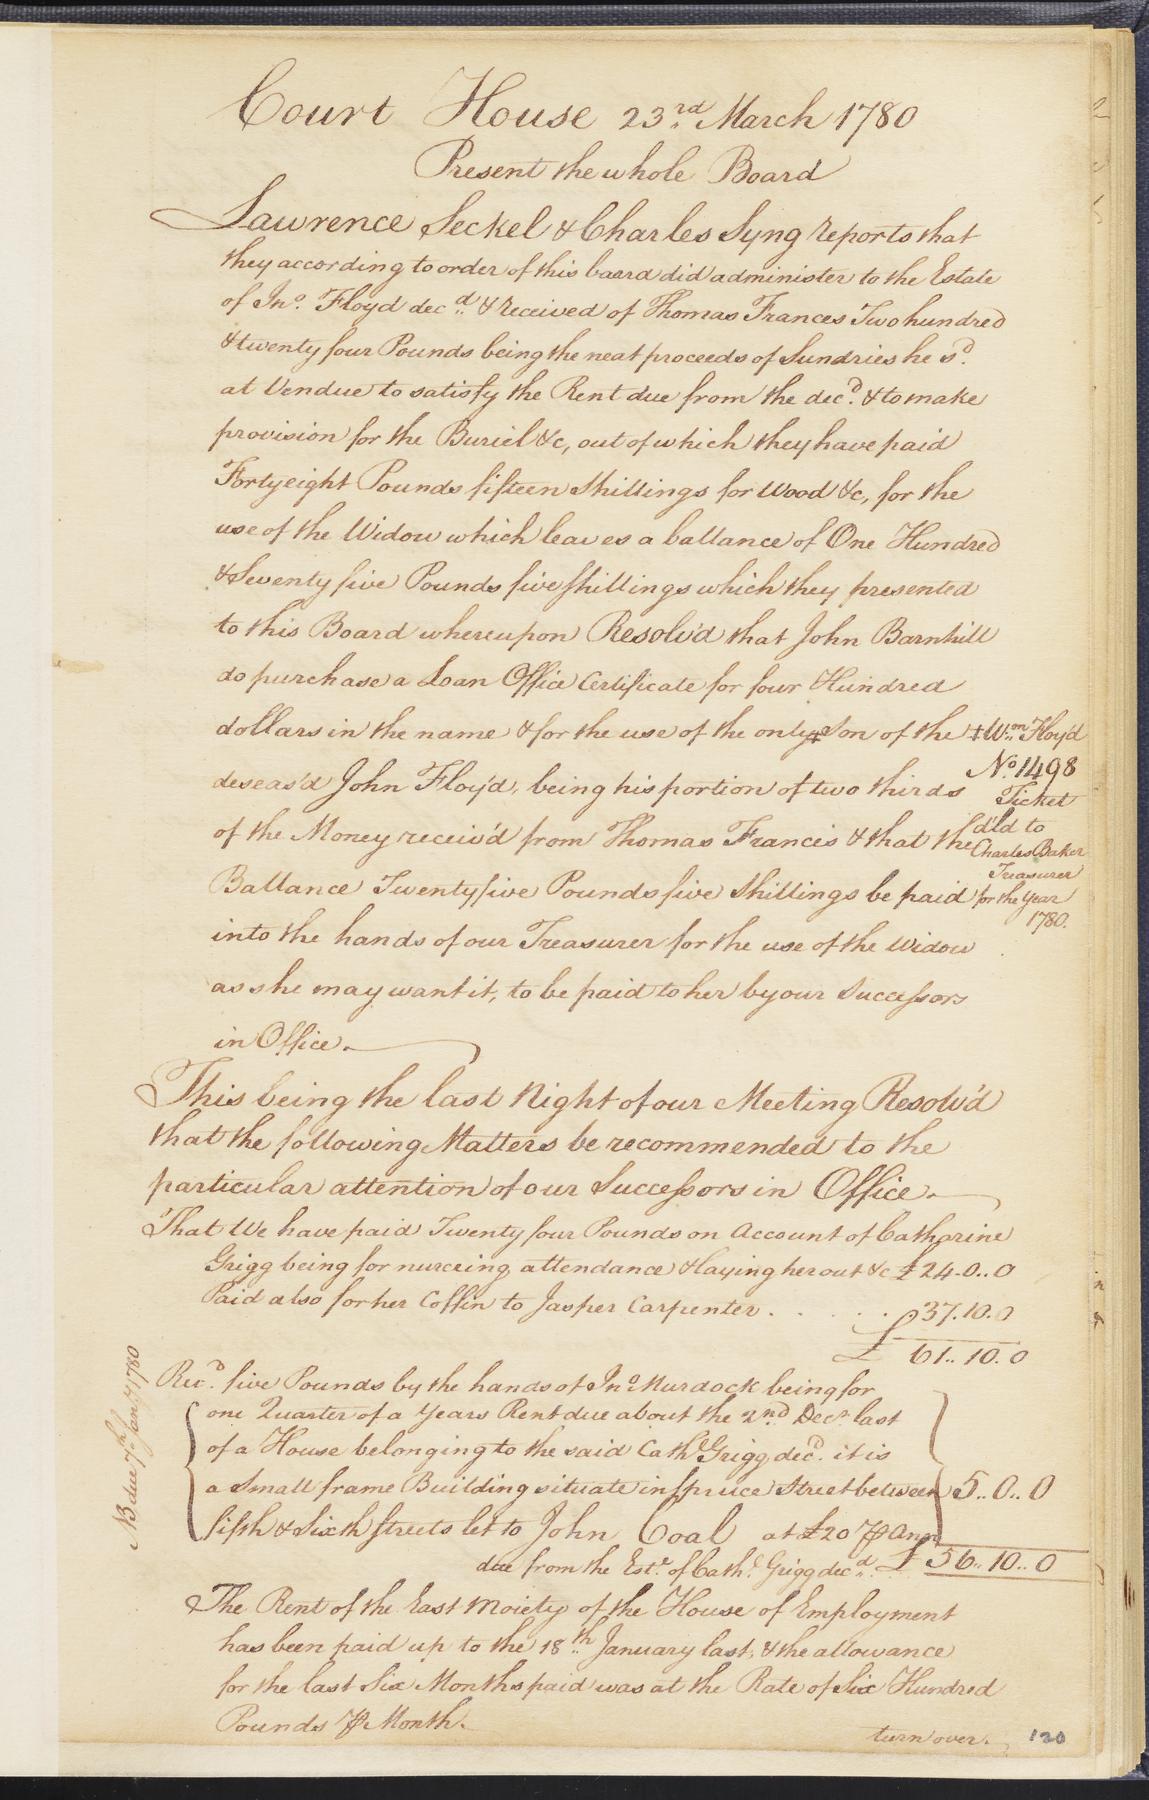 Court House 23rd March 1780
Present the whole Board
Lawrence Seckel & Charles Syng reports that
they according to order of this board did administer to the Estate
of Jno. Floyd decd. & received of Thomas Frances Two hundred
& twenty four Pounds being the neat proceeds of Sundries he sd.
at Vendue to satisfy the Rent due from the decd. & to make
provision for the Buriel &c, out of which they have paid
Forty eight Pounds fifteen Shillings for Wood &c, for the
use of the Widow which leaves a ballance of One Hundred
& Seventy five Pounds five Shillings which they presented
to this Board whereupon Resolv'd that John Barnhill
do purchase a Loan Office Certificate for four Hundred
dollars in the name & for the use of the only ‡ Son of the
‡ Wm. Floyd
No. 1498
Ticket
dld to
Charles Baker
Treasurer
for the Year
1780.
deseas'd John Floyd, being his portion of two thirds
of the Money receiv'd from Thomas Francis & that the
Ballance Twenty five Pounds five Shillings be paid
into the hands of our Treasurer for the use of the Widow
as she may want it, to be paid to her by our Successors
in Office.
This being the last Night of our Meeting Resolv'd
that the following Matters be recommended to the
particular attention of our Successors in Office.
That We have paid Twenty four Pounds on Account of Catharine
Grigg being for nurceing attendance & laying her out &c £24.0..0
Paid also for her Coffin to Jasper Carpenter . . . . £37.10.0
£ 61..10.0
NB due 7th Jany. 1780
Recd. five Pounds by the hands of Jno Murdock being for
one Quarter of a Years Rent due about the 2nd Decr last
of a House belonging to the said Cathe Grigg decd. it is
a Small frame Building situate in Spruce Street between 5..0..0
fifth & Sixth Streets let to John Coal at £20 ⅌ Ann
due from the Este. of Cathe. Grigg decd. £ 56..10..0
The Rent of the East Moiety of the House of Employment
has been paid up to the 18th January last, & the allowance
for the last Six Months paid was at the Rate of Six Hundred
Pounds ⅌ Month.
turn over.
120